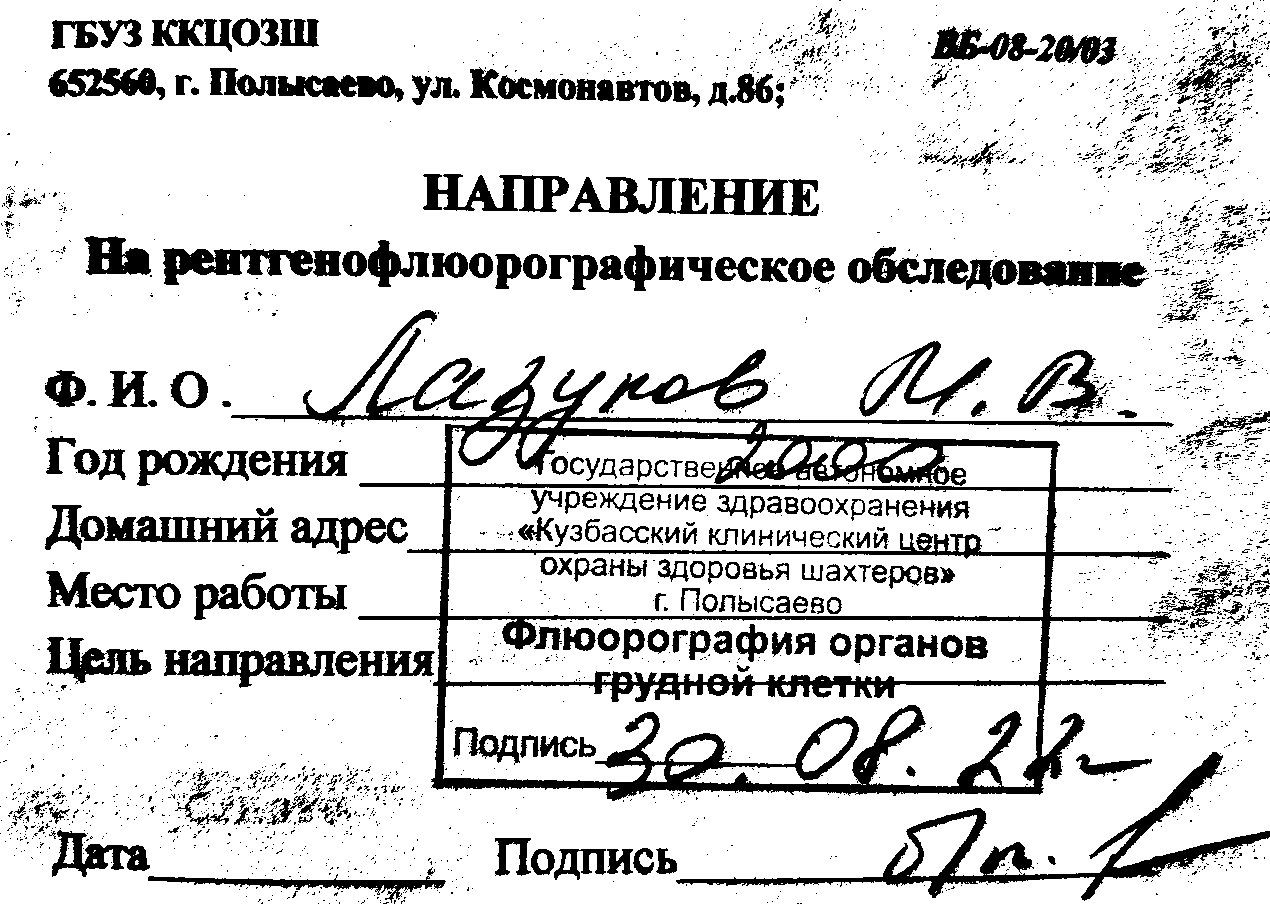 ГБУЗ ККЦОЗШ
ВБ-08-20/03
652560, г. Полысаево, ул. Космонавтов, д.86;
НАПРАВЛЕНИЕ
На рентгенофлюорографическое обследование
Ф. И. О. Лазуков М. В.
Год рождения 2000
Домашний адрес
Место работы
Цель направления
Государственное автономное
учреждение здравоохранения
«Кузбасский клинический центр
охраны здоровья шахтеров»
г. Полысаево
Флюорография органов
грудной клетки
Подпись 30.08.22г
Дата
Подпись